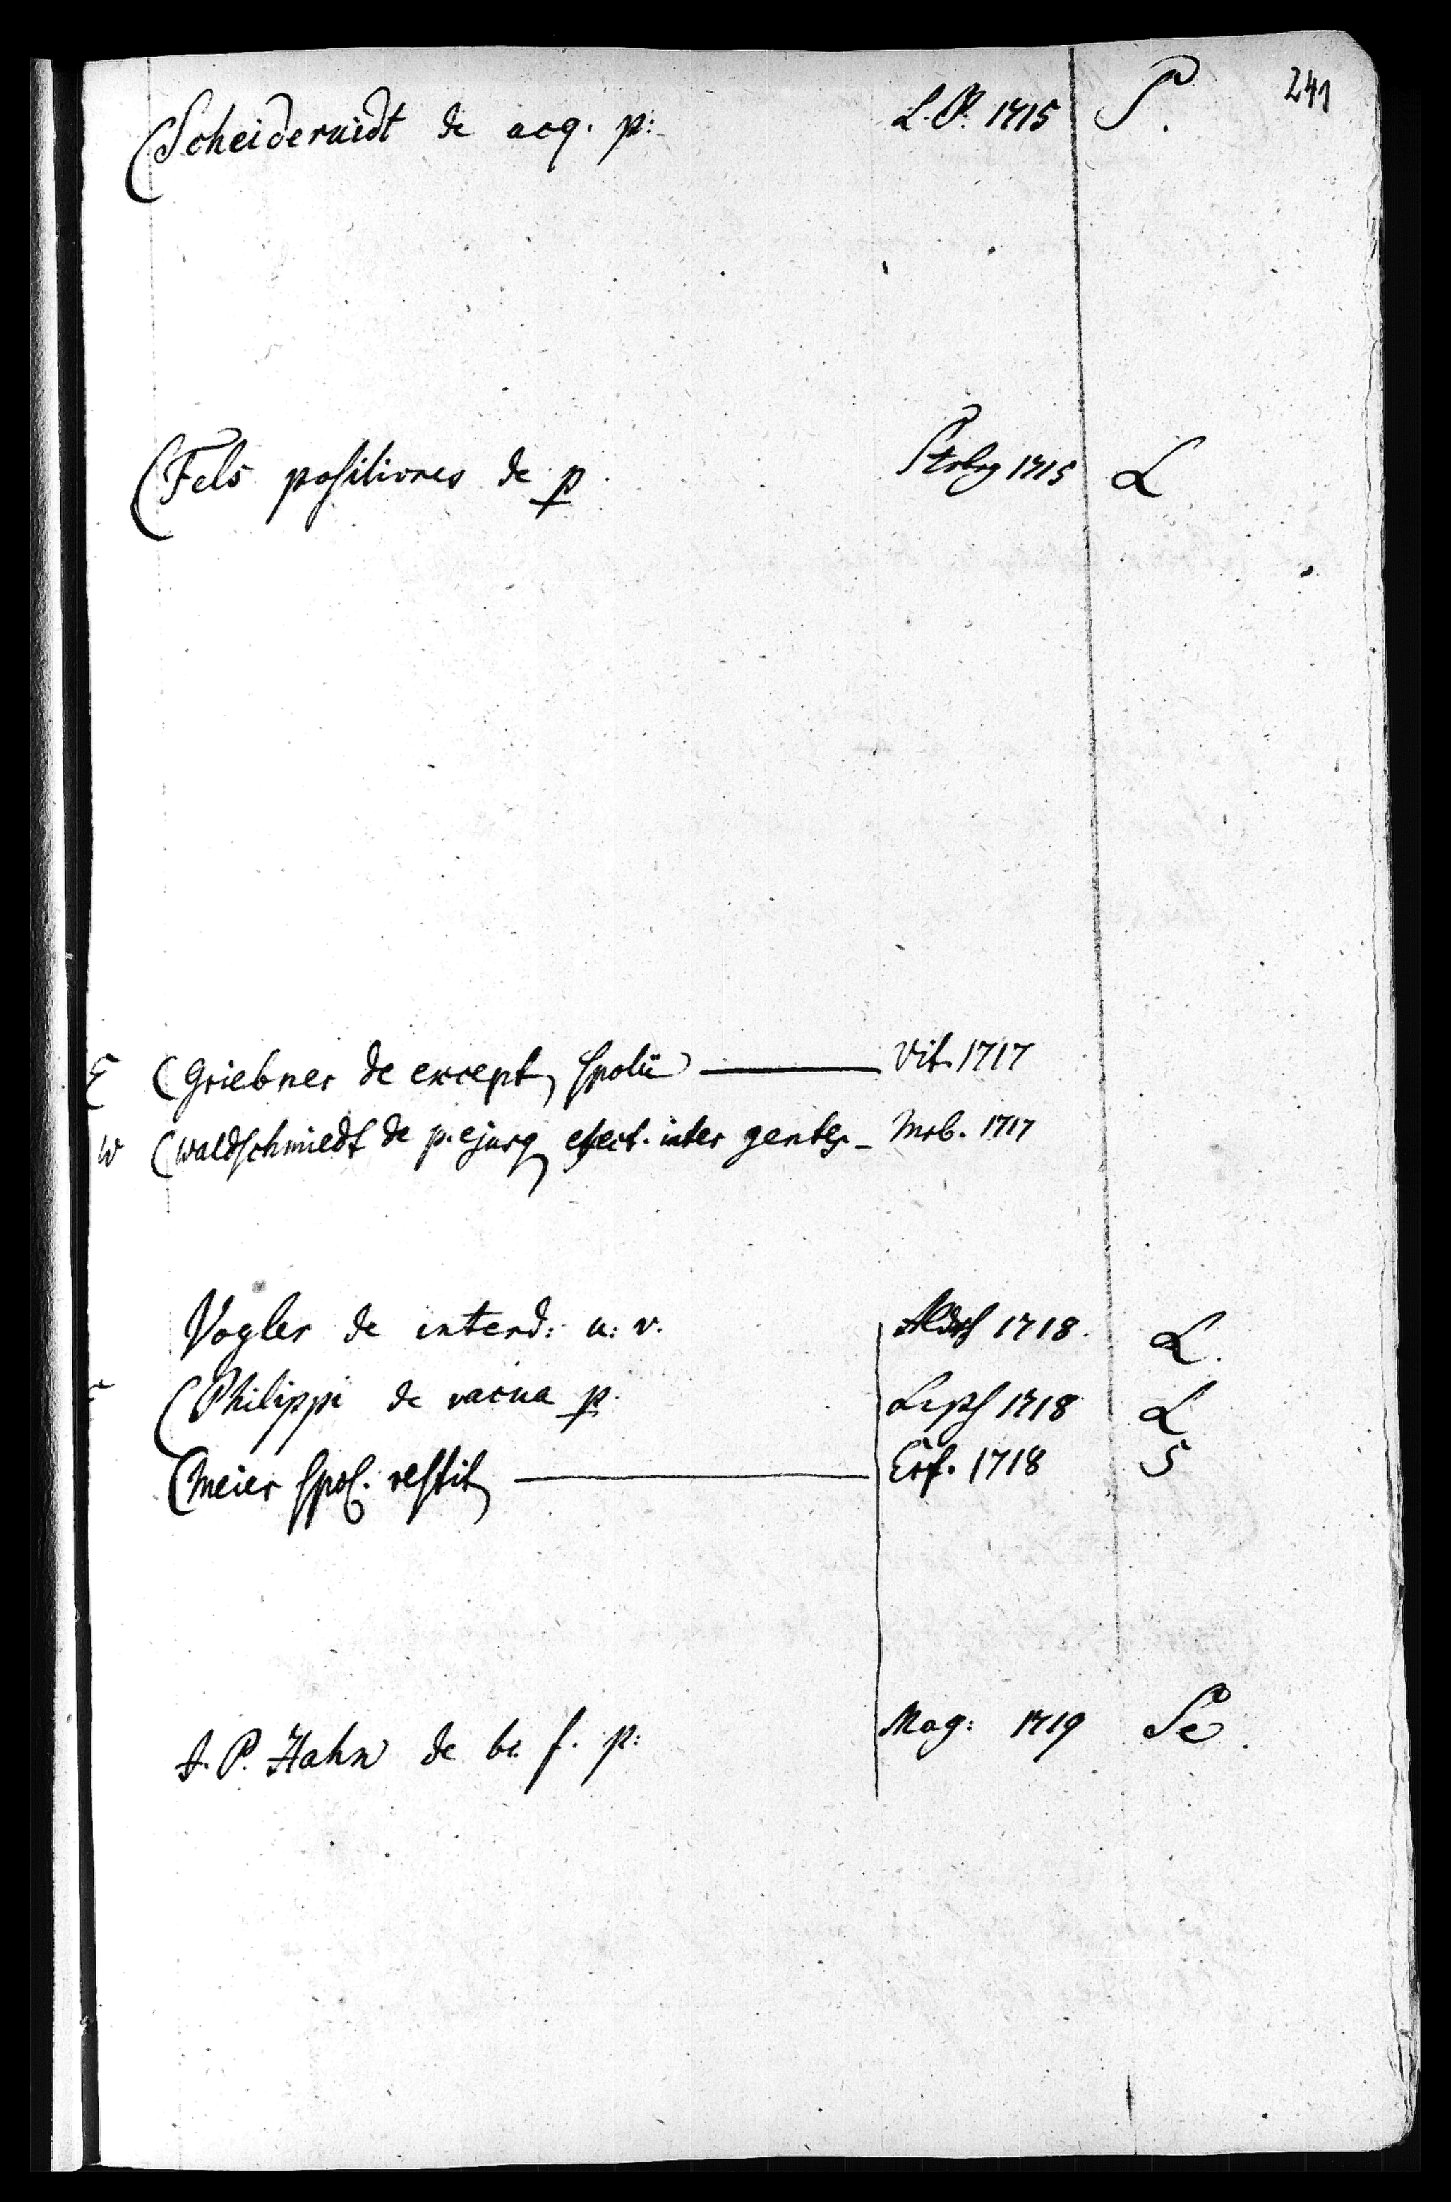 241
(Scheideruidt de acq. p: L. B. 1715 S.
(Fels positiones de p. Strbg 1715 L
(Griebner de except, spolii — Vit. 1717
W (Waldschmiedt de p. ejusq, efect. inter gentes — Mrb. 1717
Vogler de interd: u: v. Aldrf 1718. L.
(Philippi de vacua p. Lips 1718 L
(Meier spol. restit, — Erf. 1718 S
A. P. Hahn de b. f. p: Mag: 1719 Se.